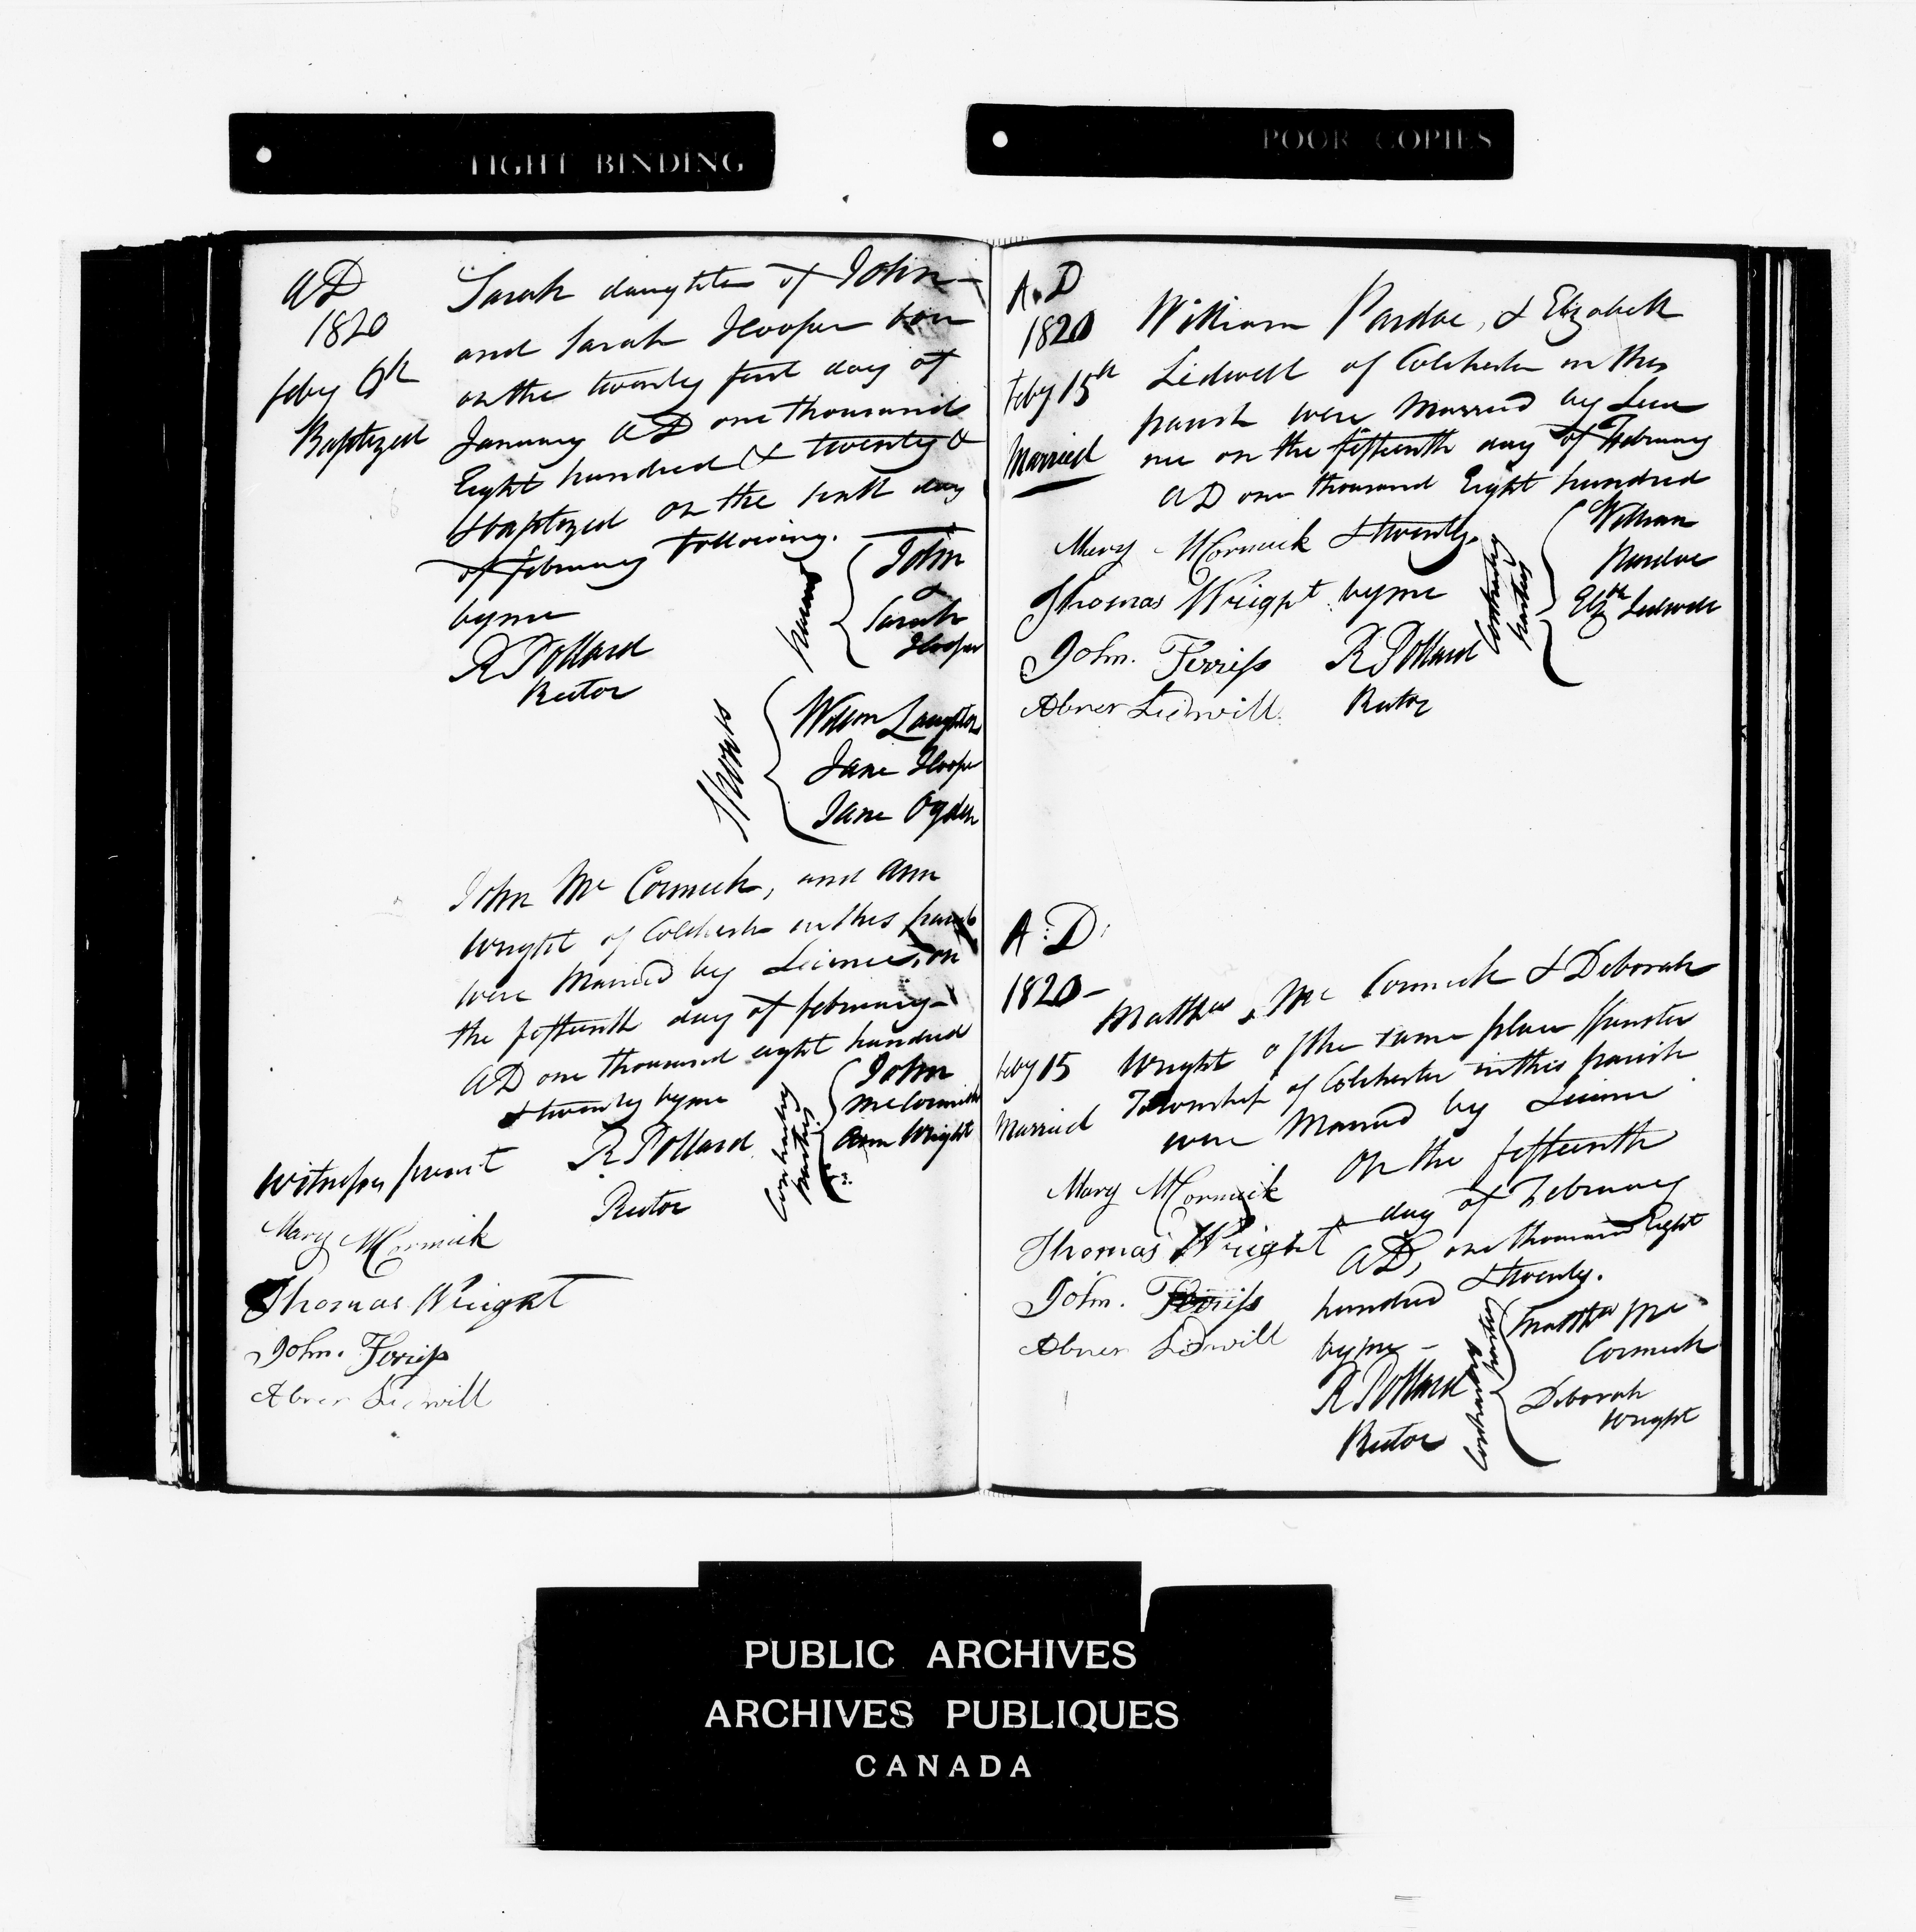 TIGHT BINDING
POOR COPIES
AD
1820
feby 6th
Baptized
Sarah daughter of John
and Sarah Hooper born
on the twenty first day of
January AD one thousand
Eight hundred & twenty &
& baptized on the sixth day
of february following.
by me
R Pollard
Rector
parents
John
&
Sarah
Hooper
Sponsors
Jane Hooper
Jane Ogden
John Mc Cormick, and Ann
Wright of Colchester in this parish
were Married by Licence, on
the fifteenth day of february
AD one thousand eight hundred
& twenty by me
R Pollard
Rector
Contracting
parties
John
McCormick
Ann Wright
Witnesses present
Mary McCormick
Thomas Wright
John. Ferriss
Abner Ledwill
A. D
1820
feby 15th
Married
William Pardoe, & Elizabeth
Ledwell of Colchester in this
parish were Married by Licen
me on the fifteenth day of February
AD one thousand Eight hundred
& twenty.
by me
R Pollard
Rector
Mary McCormick
Thomas Wright
John. Ferriss
Abner Ledwill
Contracting
parties
William
Pardoe
Elizth Ledwell
A : D :
1820 -
feby 15
Married
Matthew Mc Cormick & Deborah
Wright of the same place Spinster
Township of Colchester in this parish
were Married by Licence
on the fifteenth
day of February
AD, one thousand Eight
hundred & twenty.
by me -
R Pollard
Rector
Mary McCormick
Thomas Wright
John. Ferriss
Abner Ledwill
Contracting
parties
Matthew Mc
Cormick
Deborah
Wright
PUBLIC ARCHIVES
ARCHIVES PUBLIQUES
CANADA